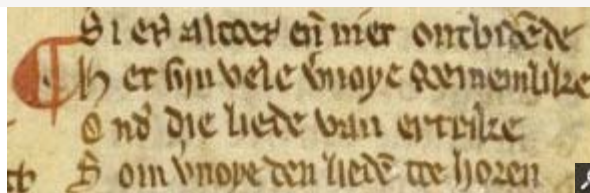 Si es altoes en̄ niet ontbīdēde
Het sijn vele v̾noye ghemeinlike
Ond̾ die liede van ertrike
Som v̾noye den liedē te horen